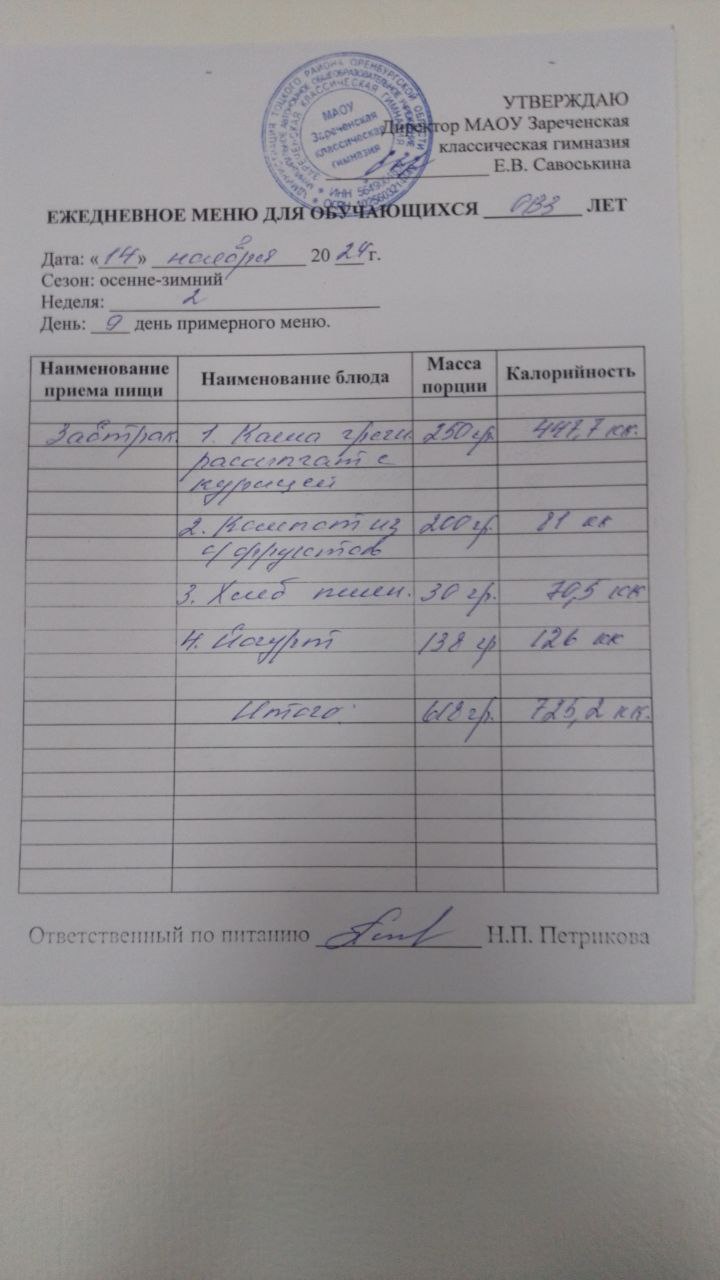 УТВЕРЖДАЮ
Директор МАОУ Зареченская
классическая гимназия
Е.В. Савоськина
МАОУ
Зареченская
классическая
гимназия
ЕЖЕДНЕВНОЕ МЕНЮ ДЛЯ ОБУЧАЮЩИХСЯ ОВЗ ЛЕТ
Дата: «14» ноября 2024 г.
Сезон: осенне-зимний
Неделя: 2
День: 9 день примерного меню.
Наименование приема пищи Наименование блюда Масса порции Калорийность
Завтрак 1. Каша гречн. 250 гр. 447,7 кк.
рассыпчат с
курицей
2. Компот из 200 гр. 81 кк
с/фруктов
3. Хлеб пшен. 30 гр. 70,5 кк
4. Йогурт 138 гр 126 кк
Итого: 618 гр. 725,2 кк.
Ответственный по питанию Н.П. Петрикова